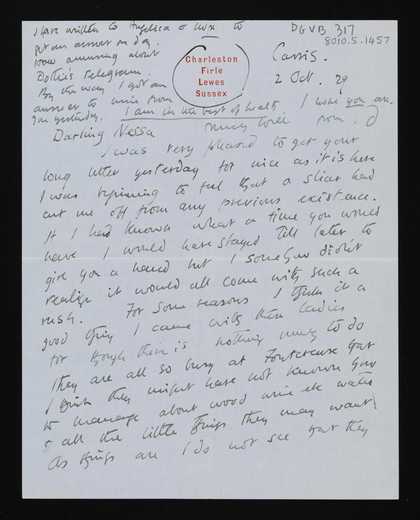 I have written to Angelica & hope to
get an answer one day.
How amusing about
Dottie's telegram
By the way I got an
answer to mine from
you yesterday. I am in the best of health I hope you are.
DGVB 317
8010.5.1457
Charleston
Firle
Lewes
Sussex
Cassis.
2 Oct. 29
Darling Nessa
I was very pleased to get your
long letter yesterday for nice as it is here
I was beginning to feel that a slice had
cut me off from any previous existence.
If I had known what a time you would
have I would have stayed till later to
give you a hand but I somehow didn't
realize it would all come with such a
rush. For some reasons I think it a
good thing I came with these ladies
for though there is nothing much to do
they are all so busy at Fontcreuse that
I think they might have not known how
to manage about wood wine etc water
& all the little things they may want
As things are I do not see that they